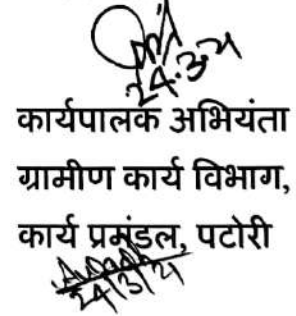 24.3.21
कार्यपालक अभियंता
ग्रामीण कार्य विभाग,
कार्य प्रमंडल, पटोरी
24/3/21